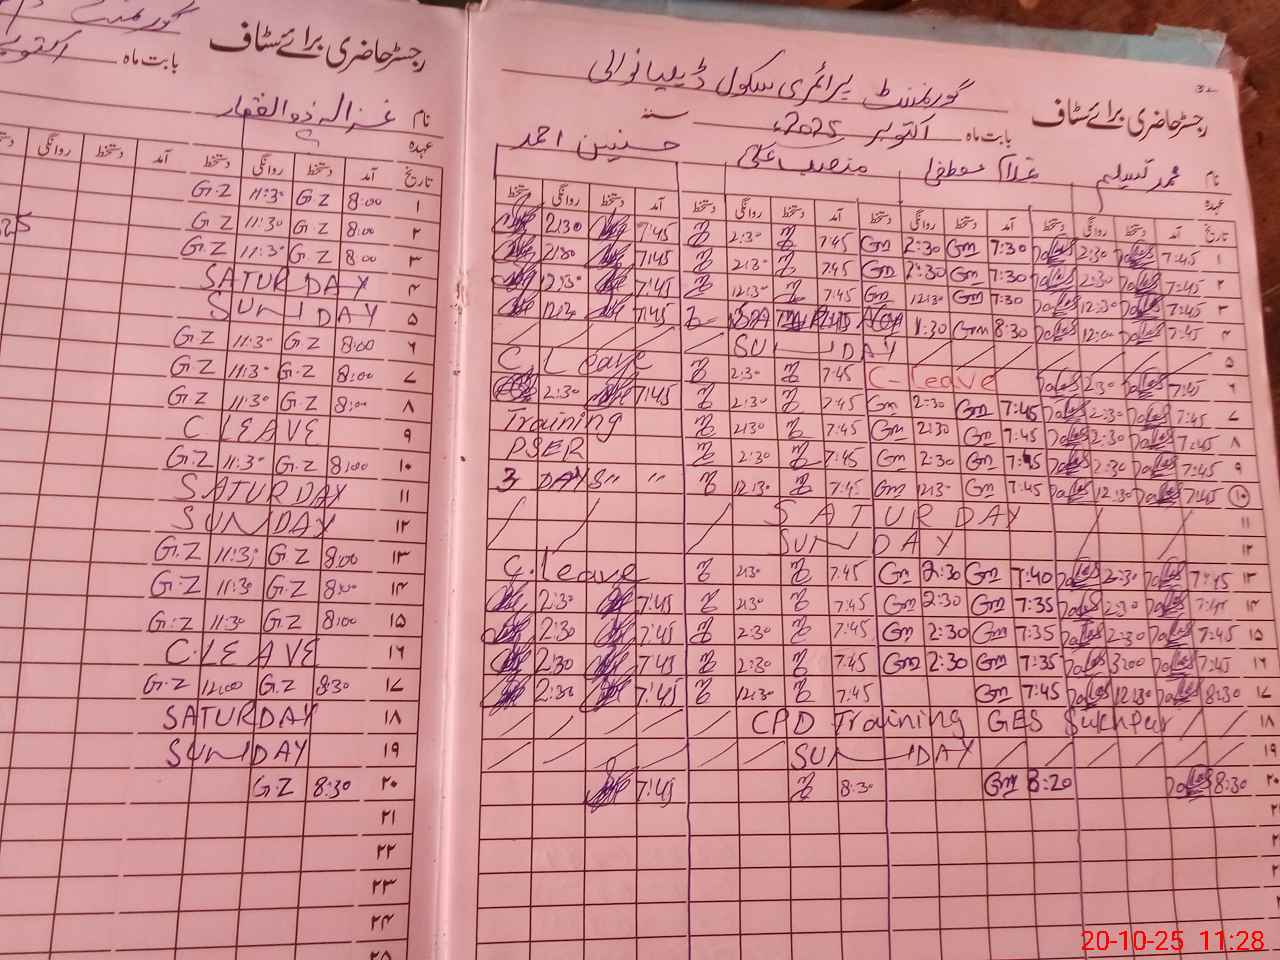 گورنمنٹ
رجسٹر حاضری برائے سٹاف
بابت ماہ اکتوبر
نام غزالہ ذوالفقار
عہدہ
تاریخ آمد دستخط روانگی دستخط آمد دستخط روانگی
۱ 8:00 G.Z 11:30 G.Z
۲ 8:00 G.Z 11:30 G.Z
۳ 8:00 G.Z 11:30 G.Z
۴ SATURDAY
۵ SUNDAY
۶ 8:00 G.Z 11:30 G.Z
۷ 8:00 G.Z 11:30 G.Z
۸ 8:00 G.Z 11:30 G.Z
۹ C LEAVE
۱۰ 8:00 G.Z 11:30 G.Z
۱۱ SATURDAY
۱۲ SUNDAY
۱۳ 8:00 G.Z 11:30 G.Z
۱۴ 8:00 G.Z 11:30 G.Z
۱۵ 8:00 G.Z 11:30 G.Z
۱۶ C.LEAVE
۱۷ 8:30 G.Z 12:00 G.Z
۱۸ SATURDAY
۱۹ SUNDAY
۲۰ 8:30 G.Z
۲۱
۲۲
۲۳
۲۴
۲۵
32
گورنمنٹ پرائمری سکول ڈیلیانوالی
رجسٹر حاضری برائے سٹاف
بابت ماہ اکتوبر 2025ء سنہ
نام محمد تسلیم غلام مصطفی منصب علی حسنین احمد
عہدہ
تاریخ آمد دستخط روانگی دستخط آمد دستخط روانگی دستخط آمد دستخط روانگی دستخط آمد دستخط روانگی دستخط
۱ 7:45 2:30 7:30 Gm 2:30 Gm 7:45 2:30 7:45 2:30
۲ 7:45 2:30 7:30 Gm 2:30 Gm 7:45 2:30 7:45 2:30
۳ 7:45 12:30 7:30 Gm 12:30 Gm 7:45 12:30 7:45 12:30
۴ 7:45 12:00 8:30 Gm 1:30 7:45 12:30
۵ SUNDAY
۶ 7:45 2:30 C-Leave 7:45 2:30 C.Leave
۷ 7:45 2:30 7:45 Gm 2:30 Gm 7:45 2:30 7:45 2:30
۸ 7:45 2:30 7:45 Gm 2:30 Gm 7:45 2:30 Training
۹ 7:45 2:30 7:45 Gm 2:30 Gm 7:45 2:30 PSER
۱۰ 7:45 12:30 7:45 Gm 12:30 Gm 7:45 12:30 3 DAYS " "
۱۱ SATURDAY
۱۲ SUNDAY
۱۳ 7:45 2:30 7:40 Gm 2:30 Gm 7:45 2:30 C.leave
۱۴ 7:45 2:30 7:35 Gm 2:30 Gm 7:45 2:30 7:45 2:30
۱۵ 7:45 2:30 7:35 Gm 2:30 Gm 7:45 2:30 7:45 2:30
۱۶ 7:45 3:00 7:35 Gm 2:30 Gm 7:45 2:30 7:45 2:30
۱۷ 8:30 12:30 7:45 Gm 7:45 12:30 7:45 2:30
۱۸ CPD Training GES Sukhpur
۱۹ SUNDAY
۲۰ 8:30 8:20 Gm 8:30 7:45
20-10-25 11:28